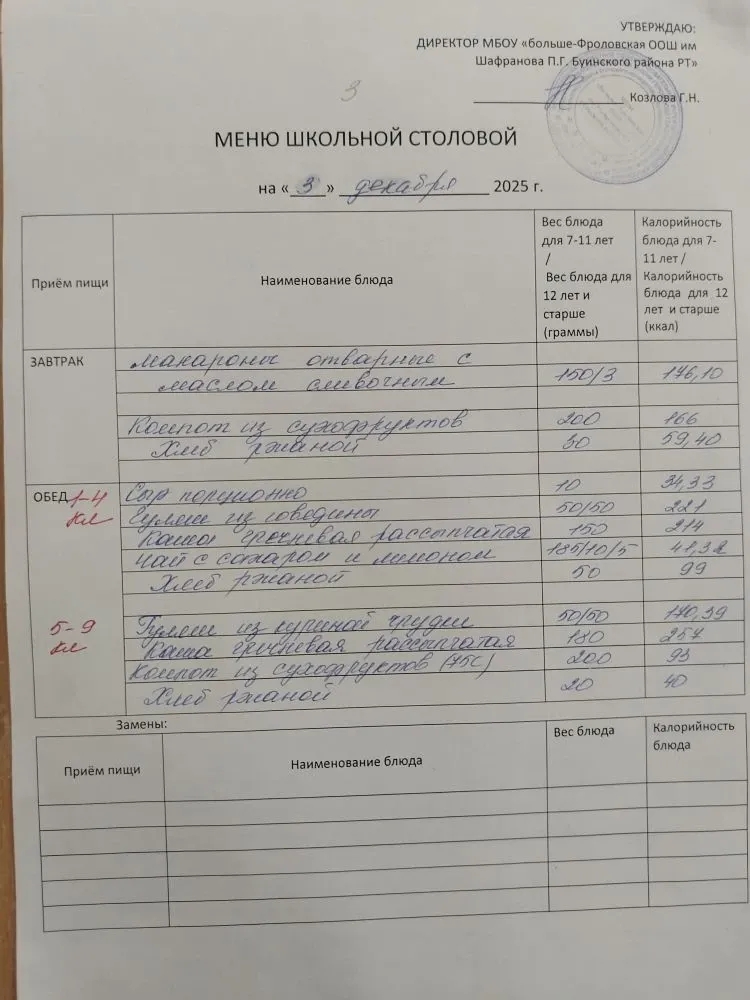 УТВЕРЖДАЮ:
ДИРЕКТОР МБОУ «больше-Фроловская ООШ им
Шафранова П.Г. Буинского района РТ»
Козлова Г.Н.
3
МЕНЮ ШКОЛЬНОЙ СТОЛОВОЙ
на « 3 » декабря 2025 г.
Приём пищи
Наименование блюда
Вес блюда
для 7-11 лет
/
Вес блюда для
12 лет и
старше
(граммы)
Калорийность
блюда для 7-
11 лет /
Калорийность
блюда для 12
лет и старше
(ккал)
ЗАВТРАК
Макароны отварные с
маслом сливочным 150/3 176,10
Компот из сухофруктов 200 166
Хлеб ржаной 30 59,40
ОБЕД 1-4 кл
Сыр порционно 10 34,33
Гуляш из говядины 50/50 221
Каша гречневая рассыпчатая 150 214
Чай с сахаром и лимоном 185/10/5 41,32
Хлеб ржаной 50 99
5-9 кл
Гуляш из куриной грудки 50/50 170,39
Каша гречневая рассыпчатая 180 257
Компот из сухофруктов (75С) 200 93
Хлеб ржаной 20 40
Замены:
Приём пищи
Наименование блюда
Вес блюда
Калорийность
блюда